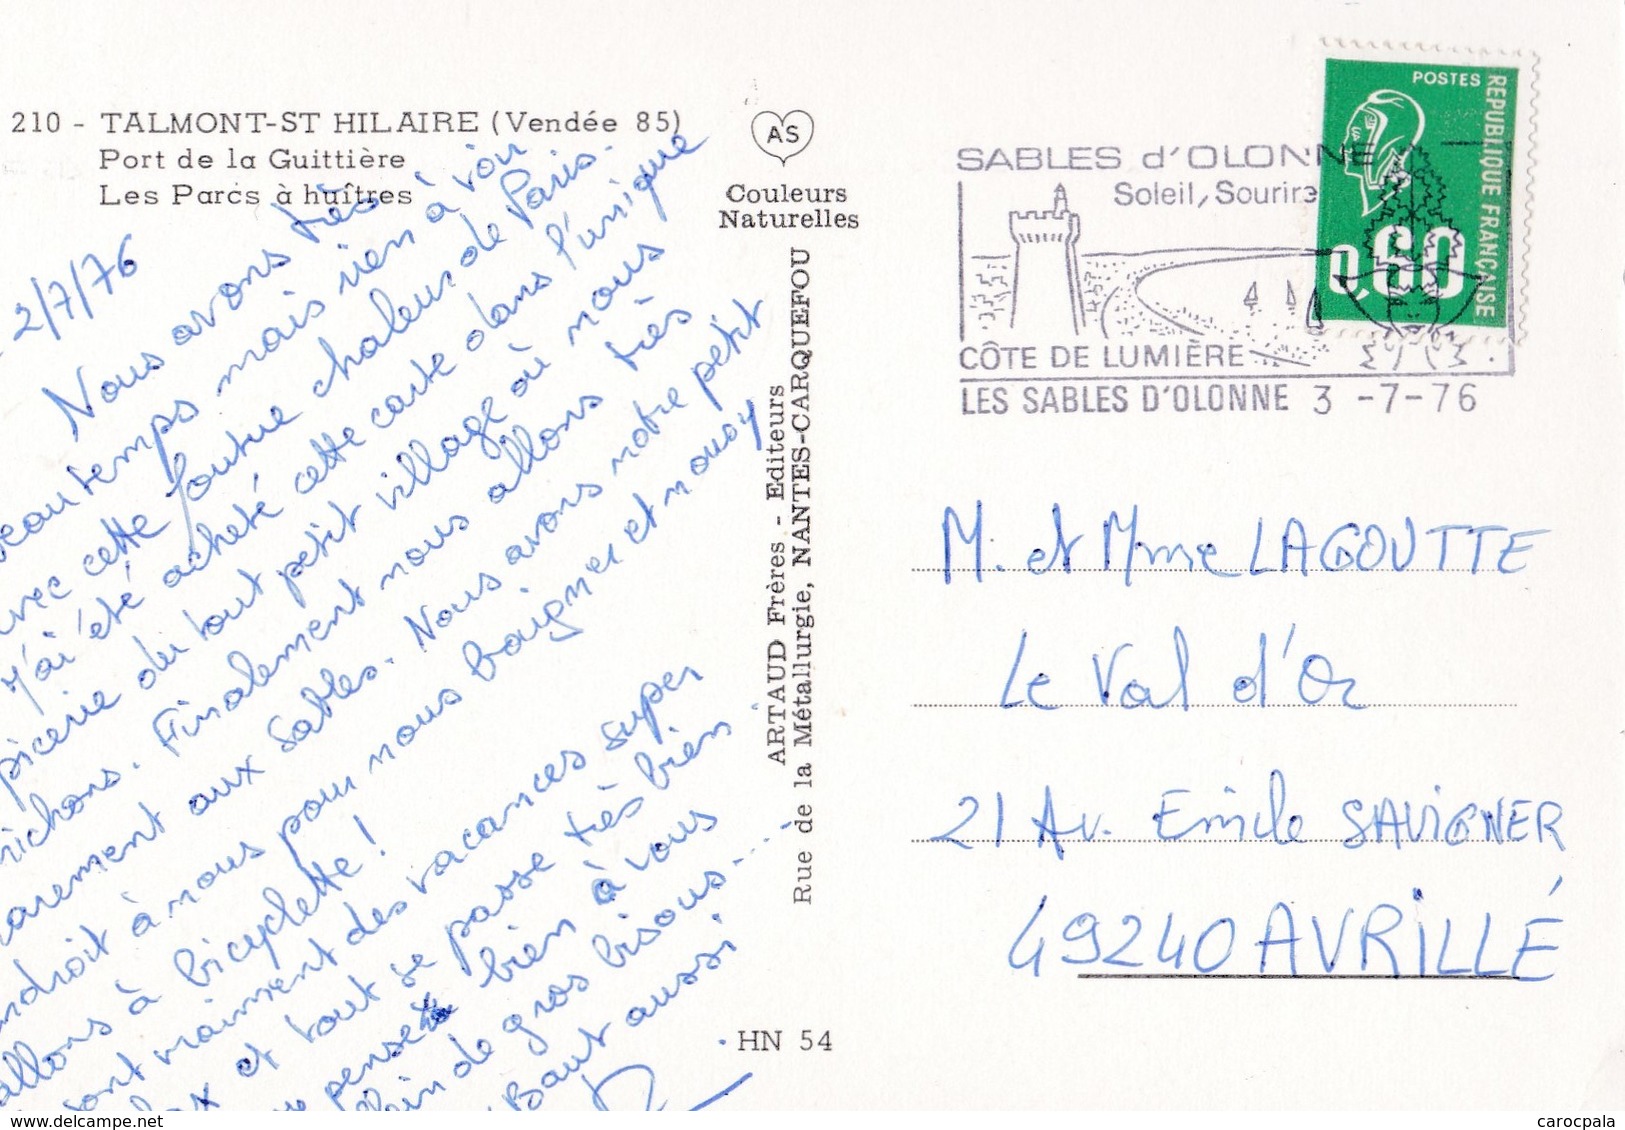 210 - TALMONT-ST HILAIRE (Vendée 85)
Port de la Guittière
Les Parcs à huîtres
2/7/76
Nous avons très
beau temps mais rien à voir
avec cette foutue chaleur de Paris.
J'ai été acheté cette carte dans l'unique
épicerie du tout petit village où nous
nichons. Finalement nous allons très
rarement aux Sables. Nous avons notre petit
endroit à nous pour nous baigner et nous y
allons à bicyclette !
sont vraiment des vacances super
et tout se passe très bien.
pense bien à vous
plein de gros bisous....
Baut aussi
AS
Couleurs
Naturelles
ARTAUD Frères - Editeurs
Rue de la Métallurgie, NANTES-CARQUEFOU
HN 54
SABLES d'OLONNE
Soleil, Sourire
CÔTE DE LUMIÈRE
LES SABLES D'OLONNE 3 -7-76
POSTES
REPUBLIQUE FRANCAISE
0,60
M. et Mme LAGOUTTE
Le Val d'Or
21 Av. Emile SAVIGNER
49240 AVRILLÉ
carocpala